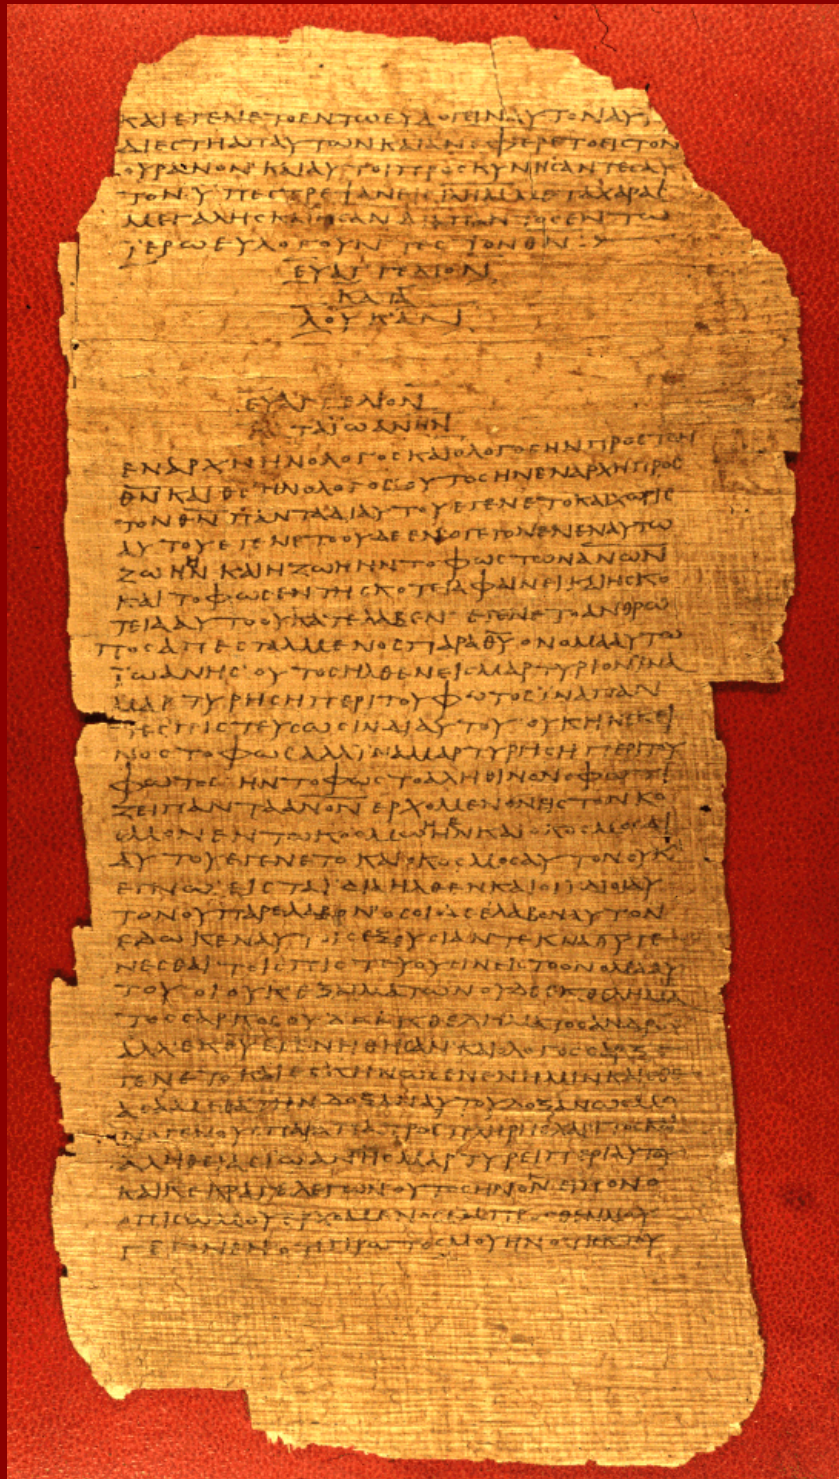 ΚΑΙΕΓΕΝΕΤΟΕΝΤΩΕΥΛΟΓΕΙΝΑΥΤΟΝΑΥΤ
ΔΙΕϹΤΗΑΠΑΥΤΩΝΚΑΙΑΝΕΦΕΡΕΤΟΕΙϹΤΟΝ
ΟΥΡΑΝΟΝΚΑΙΑΥΤΟΙΠΡΟϹΚΥΝΗϹΑΝΤΕϹΑΥ
ΤΟΝΥΠΕϹΤΡΕΨΑΝΕΙϹΙΛΗΜΜΕΤΑΧΑΡΑϹ
ΜΕΓΑΛΗϹΚΑΙΗϹΑΝΔΙΑΠΑΝΤΟϹΕΝΤΩ
ΙΕΡΩΕΥΛΟΓΟΥΝΤΕϹΤΟΝΘΝ
ΕΥΑΓΓΕΛΙΟΝ
ΚΑΤΑ
ΛΟΥΚΑΝ
ΕΥΑΓΓΕΛΙΟΝ
ΚΑΤΑΪΩΑΝΗΝ
ΕΝΑΡΧΗΗΝΟΛΟΓΟϹΚΑΙΟΛΟΓΟϹΗΝΠΡΟϹΤΟΝ
ΘΝΚΑΙΘϹΗΝΟΛΟΓΟϹΟΥΤΟϹΗΝΕΝΑΡΧΗΠΡΟϹ
ΤΟΝΘΝΠΑΝΤΑΔΙΑΥΤΟΥΕΓΕΝΕΤΟΚΑΙΧΩΡΙϹ
ΑΥΤΟΥΕΓΕΝΕΤΟΟΥΔΕΕΝΟΓΕΓΟΝΕΝΕΝΑΥΤΩ
ΖΩΗΗΝΚΑΙΗΖΩΗΗΝΤΟΦΩϹΤΩΝΑΝΩΝ
ΚΑΙΤΟΦΩϹΕΝΤΗϹΚΟΤΕΙΑΦΑΙΝΕΙΚΑΙΗϹΚΟ
ΤΕΙΑΑΥΤΟΟΥΚΑΤΕΛΑΒΕΝΕΓΕΝΕΤΟΑΝΘΡΩ
ΠΟϹΑΠΕϹΤΑΛΜΕΝΟϹΠΑΡΑΘΥΟΝΟΜΑΑΥΤΩ
ΪΩΑΝΗϹΟΥΤΟϹΗΛΘΕΝΕΙϹΜΑΡΤΥΡΙΟΝΙΝΑ
ΜΑΡΤΥΡΗϹΗΠΕΡΙΤΟΥΦΩΤΟϹΙΝΑΠΑΝ
ΤΕϹΠΙϹΤΕΥϹΩϹΙΝΔΙΑΥΤΟΥΟΥΚΗΝΕΚΕΙ
ΝΟϹΤΟΦΩϹΑΛΛΙΝΑΜΑΡΤΥΡΗϹΗΠΕΡΙΤΟΥ
ΦΩΤΟϹΗΝΤΟΦΩϹΤΟΑΛΗΘΙΝΟΝΟΦΩΤΙ
ΖΕΙΠΑΝΤΑΑΝΟΝΕΡΧΟΜΕΝΟΝΕΙϹΤΟΝΚΟ
ϹΜΟΝΕΝΤΩΚΟϹΜΩΗΝΚΑΙΟΚΟϹΜΟϹΔΙ
ΑΥΤΟΥΕΓΕΝΕΤΟΚΑΙΟΚΟϹΜΟϹΑΥΤΟΝΟΥΚ
ΕΓΝΩΕΙϹΤΑΙΔΙΑΗΛΘΕΝΚΑΙΟΙΙΔΙΟΙΑΥ
ΤΟΝΟΥΠΑΡΕΛΑΒΟΝΟϹΟΙΔΕΕΛΑΒΟΝΑΥΤΟΝ
ΕΔΩΚΕΝΑΥΤΟΙϹΕΞΟΥϹΙΑΝΤΕΚΝΑΘΥΓΕ
ΝΕϹΘΑΙΤΟΙϹΠΙϹΤΕΥΟΥϹΙΝΕΙϹΤΟΟΝΟΜΑΑΥ
ΤΟΥΟΙΟΥΚΕΞΑΙΜΑΤΩΝΟΥΔΕΕΚΘΕΛΗΜΑ
ΤΟϹϹΑΡΚΟϹΟΥΔΕΕΚΘΕΛΗΜΑΤΟϹΑΝΔΡΟϹ
ΑΛΛΑΕΚΘΥΕΓΕΝΗΘΗϹΑΝΚΑΙΟΛΟΓΟϹϹΑΡΞΕ
ΓΕΝΕΤΟΚΑΙΕϹΚΗΝΩϹΕΝΕΝΗΜΙΝΚΑΙΕΘΕ
ΑϹΑΜΕΘΑΤΗΝΔΟΞΑΝΑΥΤΟΥΔΟΞΑΝΩϹΜΟ
ΝΟΓΕΝΟΥϹΠΑΡΑΠΑΤΡΟϹΠΛΗΡΗϹΧΑΡΙΤΟϹΚΑΙ
ΑΛΗΘΕΙΑϹΙΩΑΝΗϹΜΑΡΤΥΡΕΙΠΕΡΙΑΥΤΟΥ
ΚΑΙΚΕΚΡΑΓΕΛΕΓΩΝΟΥΤΟϹΗΝΟΝΕΙΠΟΝΟ
ΟΠΙϹΩΜΟΥΕΡΧΟΜΕΝΟϹΕΜΠΡΟϹΘΕΝΜΟΥ
ΓΕΓΟΝΕΝΟΤΙΠΡΩΤΟϹΜΟΥΗΝΟΤΙΕΚΤΟΥ